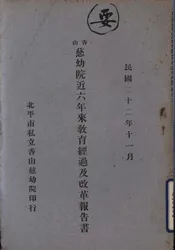 要
民國二十二年十一月
香山
慈幼院近六年來教育經過及改革報告書
北平市私立香山慈幼院印行